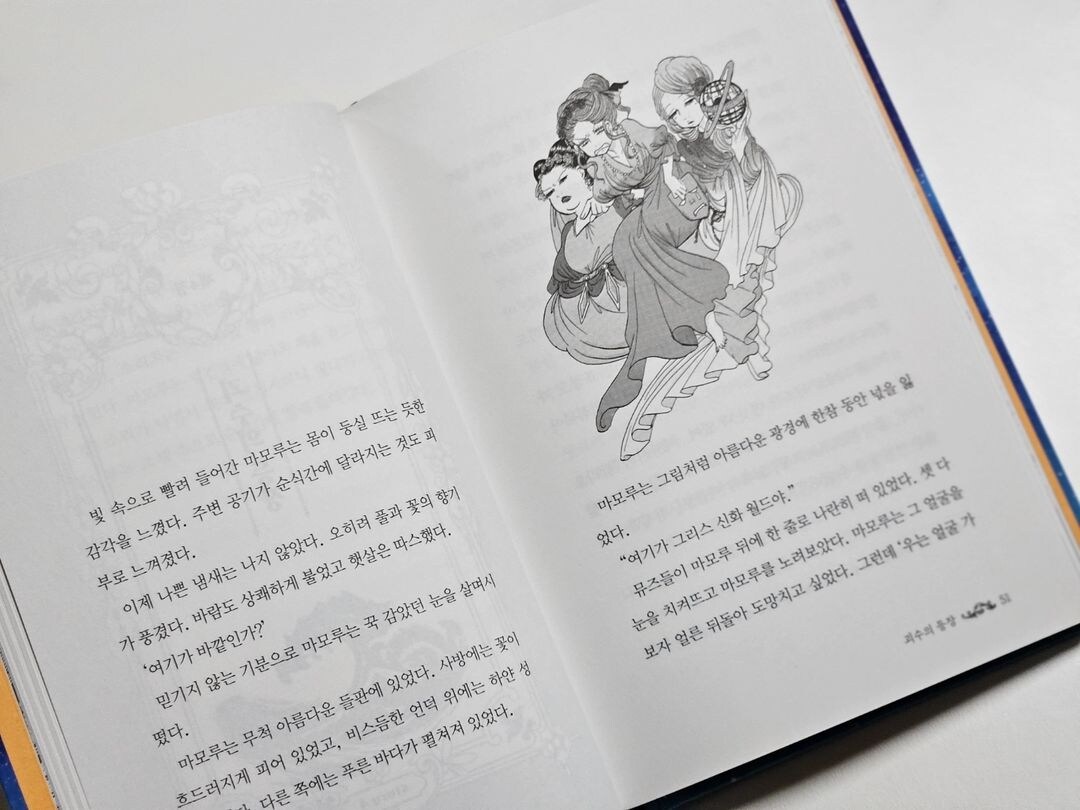 빛 속으로 빨려 들어간 마모루는 몸이 둥실 뜨는 듯한
감각을 느꼈다. 주변 공기가 순식간에 달라지는 것도 피
부로 느껴졌다.
이제 나쁜 냄새는 나지 않았다. 오히려 풀과 꽃의 향기
가 풍겼다. 바람도 상쾌하게 불었고 햇살은 따스했다.
‘여기가 바깥인가?’
믿기지 않는 기분으로 마모루는 꾹 감았던 눈을 살며시
떴다.
마모루는 무척 아름다운 들판에 있었다. 사방에는 꽃이
흐드러지게 피어 있었고, 비스듬한 언덕 위에는 하얀 성
다른 쪽에는 푸른 바다가 펼쳐져 있었다.
마모루는 그림처럼 아름다운 광경에 한참 동안 넋을 잃
었다.
“여기가 그리스 신화 월드야.”
뮤즈들이 마모루 뒤에 한 줄로 나란히 떠 있었다. 셋 다
눈을 치켜뜨고 마모루를 노려보았다. 마모루는 그 얼굴을
보자 얼른 뒤돌아 도망치고 싶었다. 그런데 ‘우는 얼굴 가
괴수의 등장 51